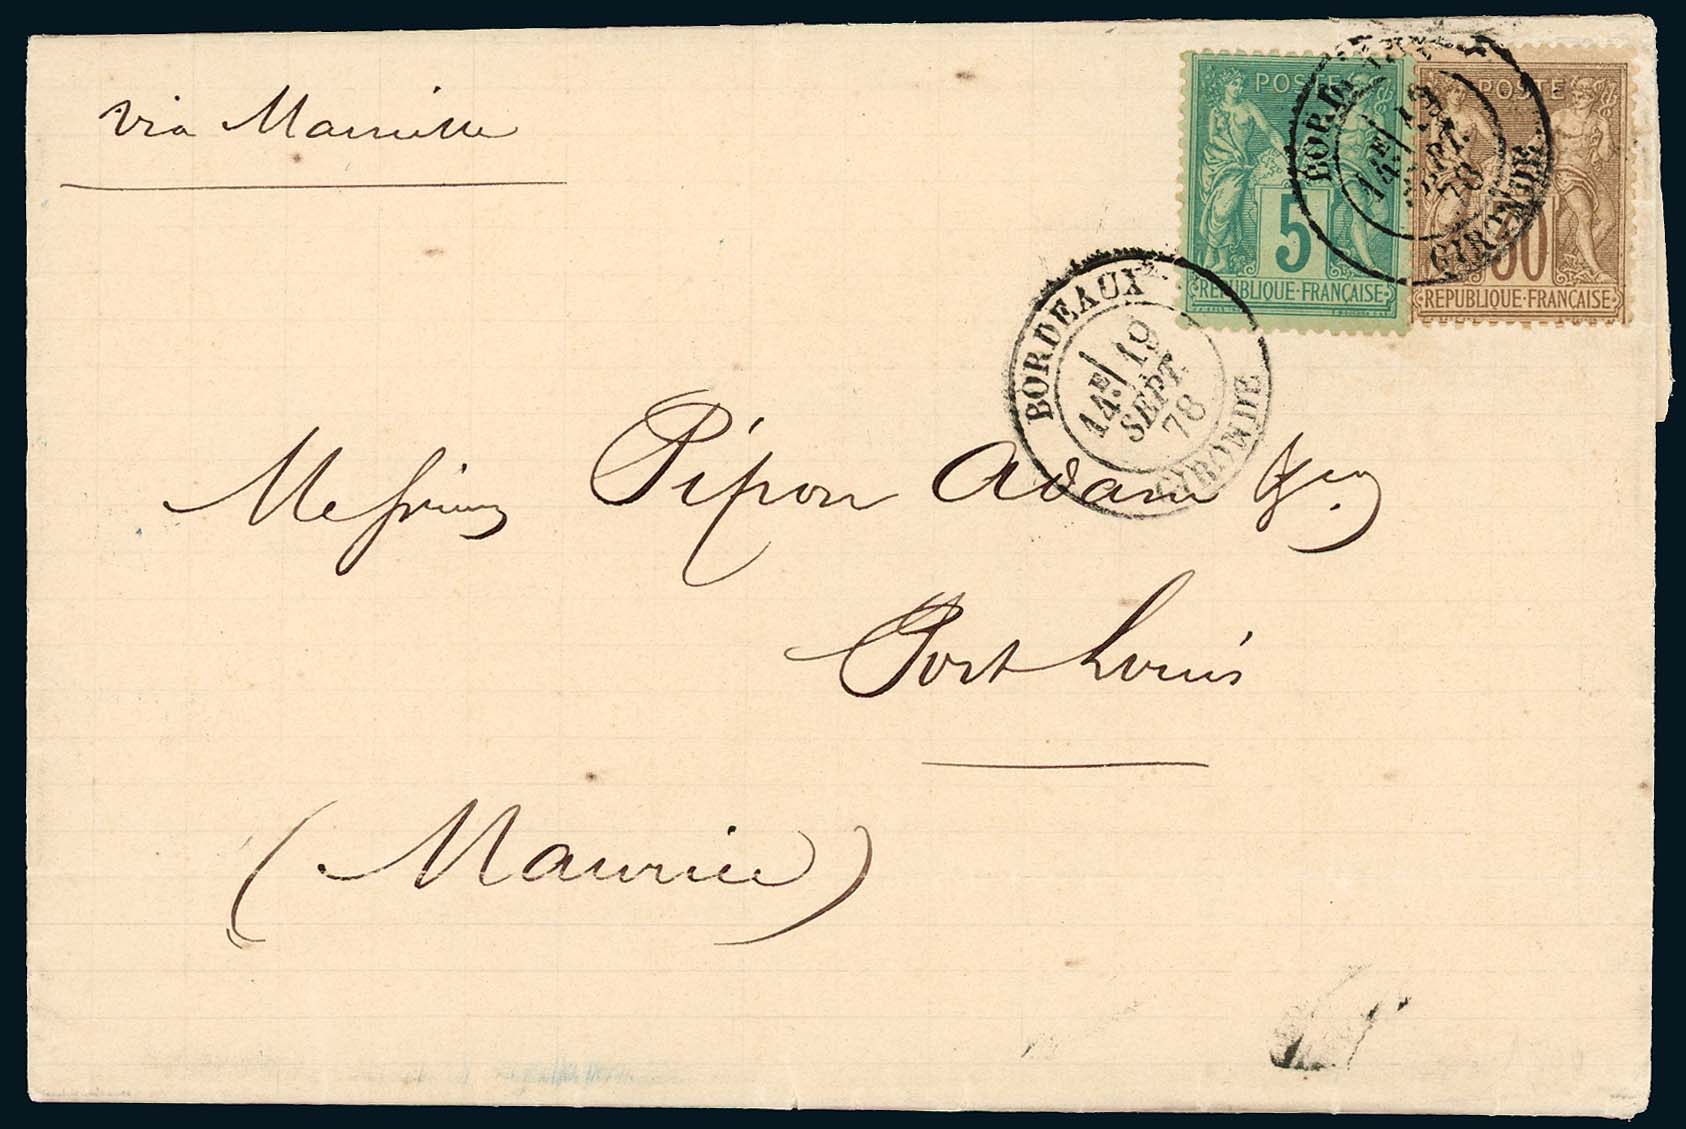 via Marseille
POSTE
5
REPUBLIQUE-FRANÇAISE
POSTE
30
REPUBLIQUE-FRANÇAISE
BORDEAUX
14E/ 19
SEPT.
78
GIRONDE
BORDEAUX
14E/ 19
SEPT.
78
GIRONDE
Messieurs Pipon Adam &
Port Louis
(Maurice)